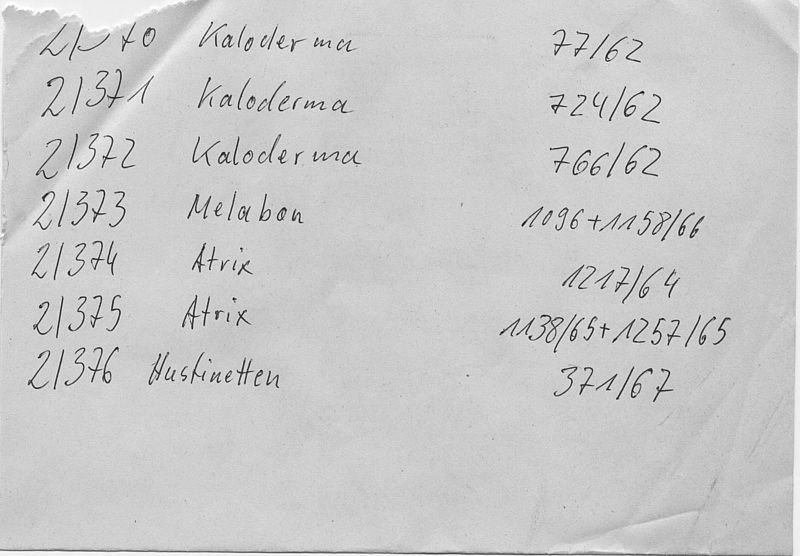 Kaloderma 77/62
2/371 Kaloderma 724/62
2/372 Kaloderma 766/62
2/373 Melabon 1096+1158/66
2/374 Atrix 1217/64
2/375 Atrix 1138/65+1257/65
2/376 Hustinetten 371/67